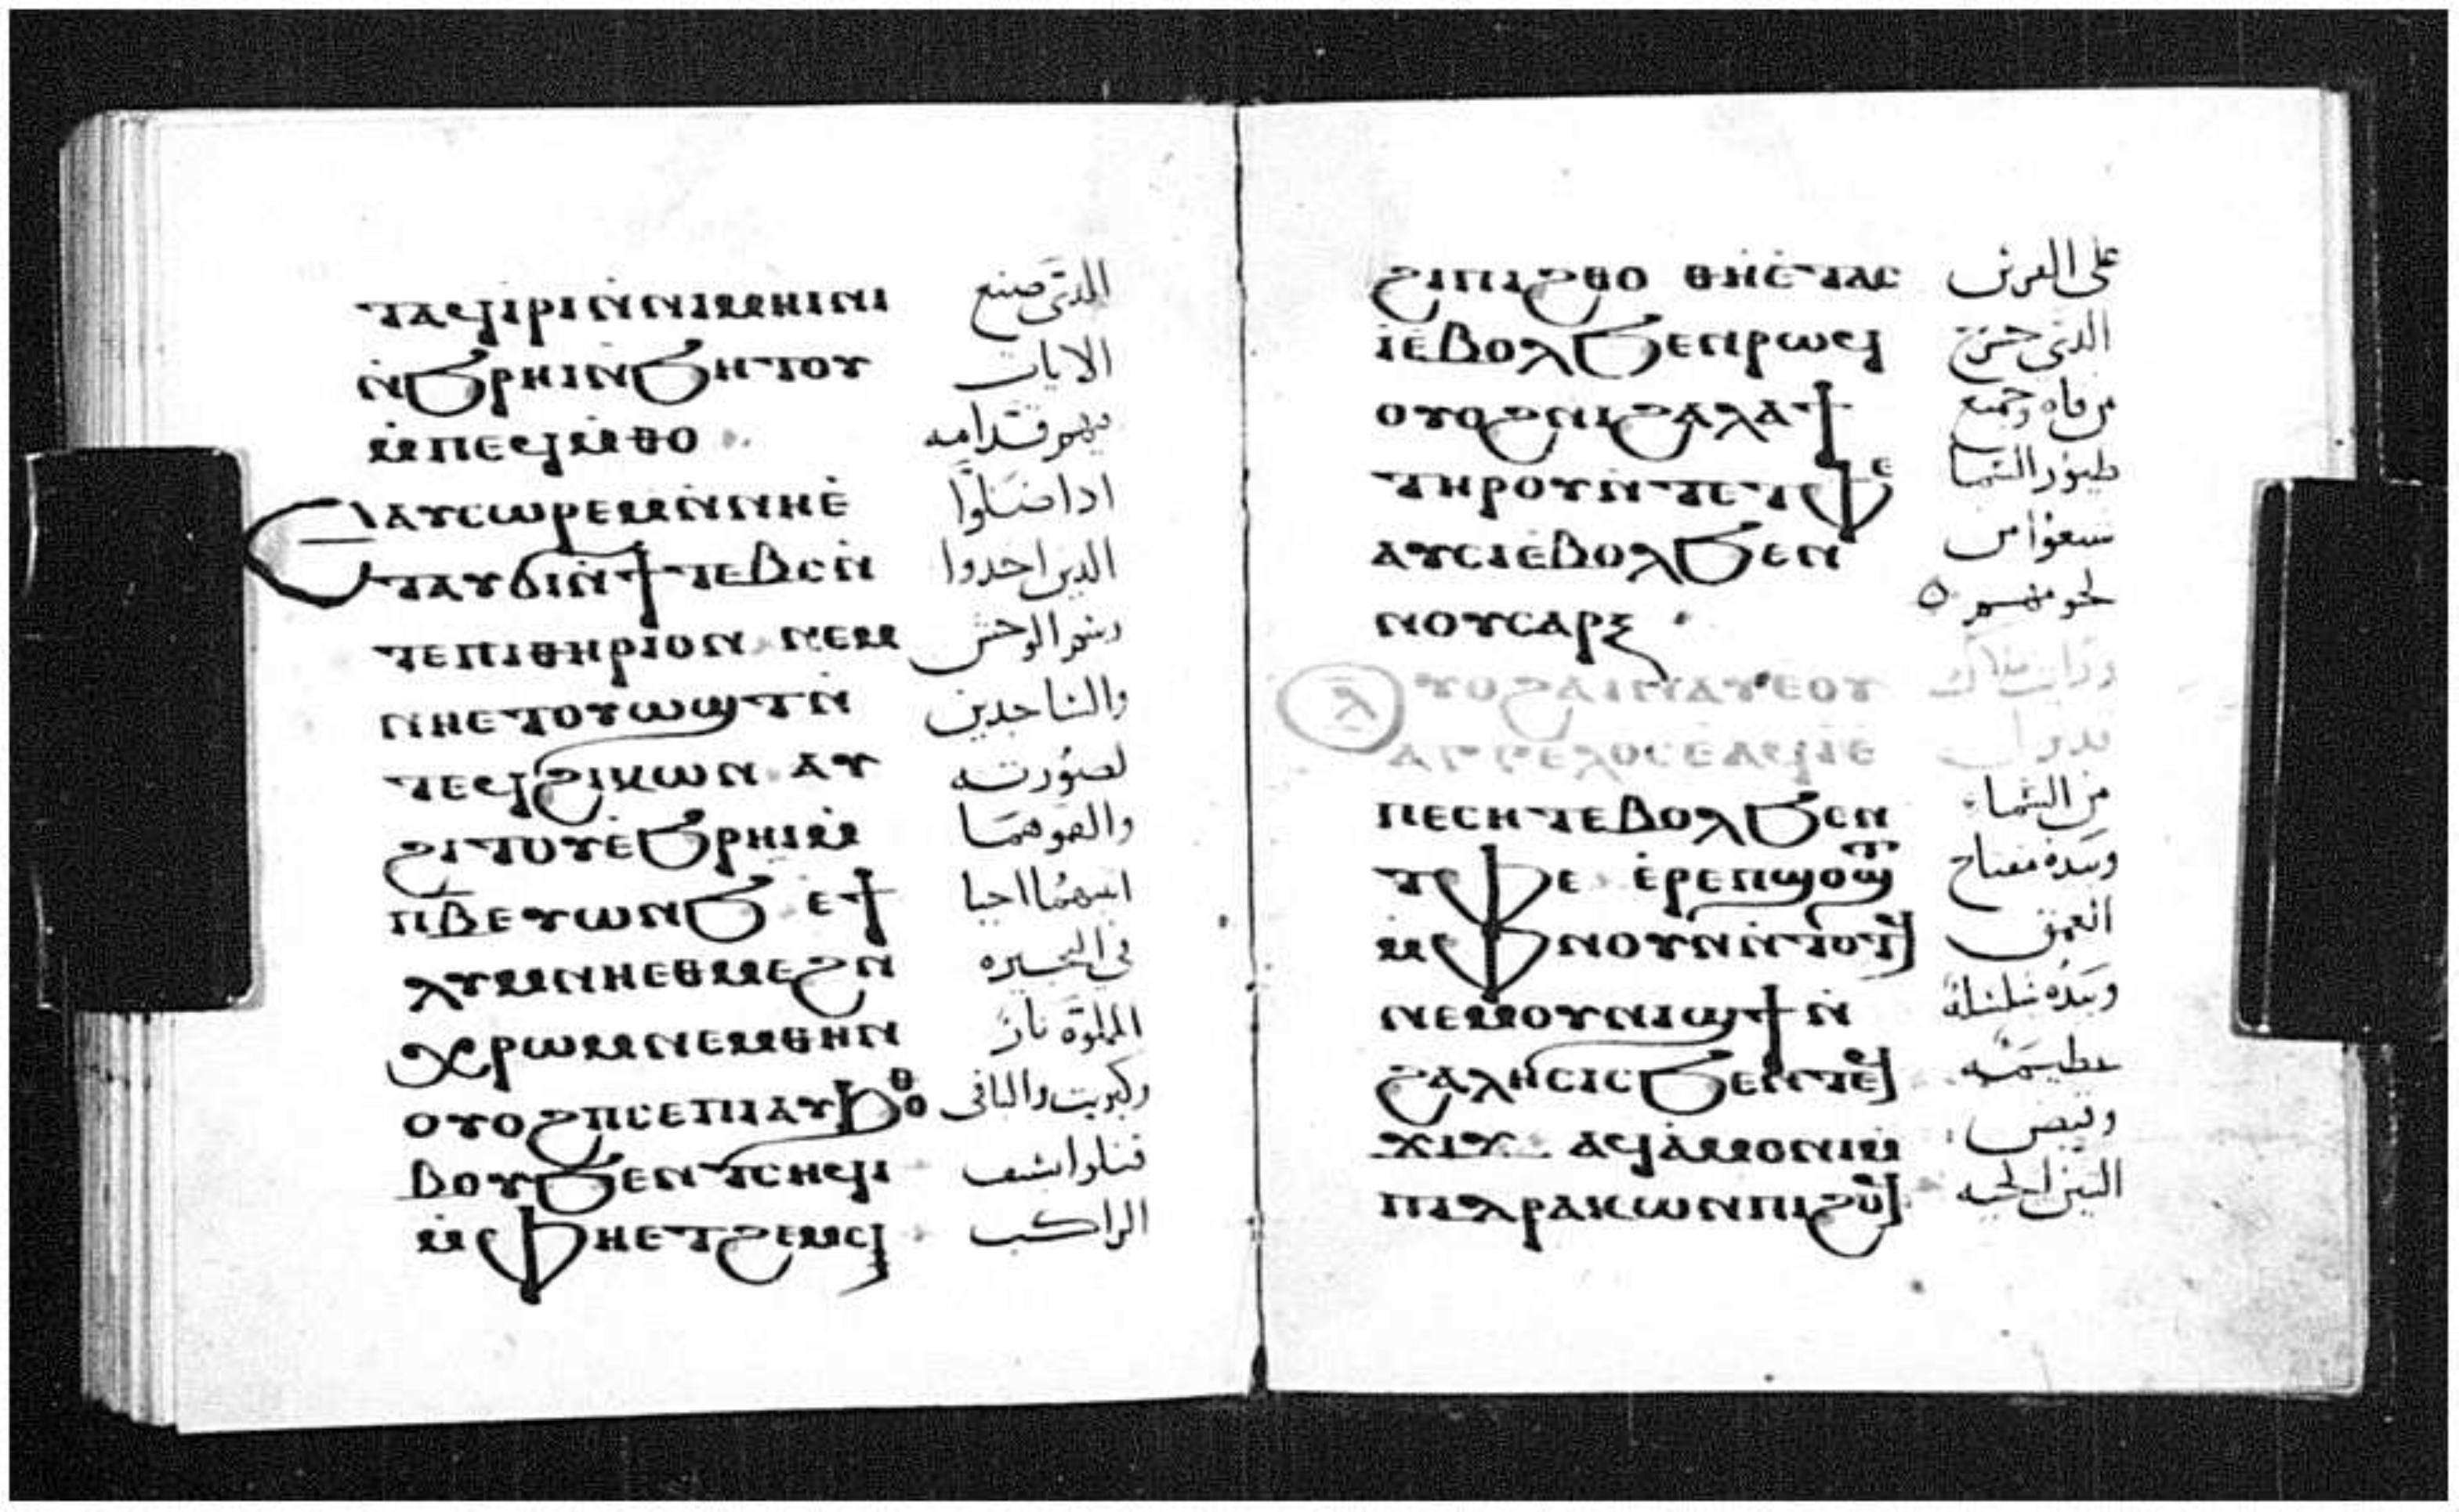 ⲧⲁϥⲓⲣⲓⲛ̀ⲛⲓⲙⲏⲓⲛⲓ الدى صنع
ⲛ̀ϧⲣⲏⲓⲛ̀ϧⲏⲧⲟⲩ الايات
ⲙ̀ⲡⲉϥⲙ̀ⲑⲟ بهم قدامه
ⲉⲁⲩⲥⲱⲣⲉⲙⲛ̀ⲛⲏⲉ̀ ادا ضلوا
ⲧⲁⲩϭⲓⲛ̀ϯⲧⲉⲃⲥⲛ̀ الدين احدوا
ⲧⲉⲡⲓⲑⲏⲣⲓⲟⲛ ⲛⲉⲙ رشم الوحش
ⲛⲏⲉⲧⲟⲩⲱϣⲧⲛ̀ والساجدين
ⲧⲉϥϩⲓⲕⲱⲛ ⲁⲩ لصورته
ϩⲓⲧⲟⲩⲉ̀ϧⲣⲏⲓⲙ̀ والقوهما
ⲡⲃⲉⲩⲱⲛϧ ⲉϯ احيا
ⲗⲩⲙⲛⲏⲉⲑⲙⲉϩⲛ في البحيره
ⲭⲣⲱⲙⲛⲉⲙⲑⲏⲛ المملوة نار
ⲟⲩⲟϩⲡⲥⲉⲡⲓⲁⲩϧⲟⲑ وكبريت والباقى
ⲃⲟⲩϧⲉⲛⲧⲥⲏϥⲓ قتلوا بسيف
ⲙ̀ⲫⲏⲉⲧϩⲉⲙⲥⲓ الراكب
ϩⲓⲡⲓϩⲑⲟ ⲑⲏⲉ̀ⲧⲁⲥ على الفرس
ⲓⲉ̀ⲃⲟⲗϧⲉⲛⲣⲱϥ الدى خرج
ⲟⲩⲟϩⲛⲓϩⲁⲗⲁϯ من فاه وجميع
ⲧⲏⲣⲟⲩⲛ̀ⲧⲉⲧⲫⲉ طيور السما
ⲁⲩⲥⲓⲉ̀ⲃⲟⲗϧⲉⲛ شبعوا من
ⲛⲟⲩⲥⲁⲣⲝ لحومهم
ⲟⲩⲟϩⲁⲓⲛⲁⲩⲉⲟⲩ ورايت ملاك
ⲁⲅⲅⲉⲗⲟⲥⲉ̀ⲁϥⲓ̀ⲉ̀
ⲡⲉⲥⲏⲧⲉ̀ⲃⲟⲗϧⲉⲛ من السماء
ⲧⲫⲉ ⲉ̀ⲣⲉⲡϣⲟϣⲧ وبيده مفتاح
ⲙ̀ⲫⲛⲟⲩⲛⲛ̀ⲧⲟⲧϥ العمق
ⲛⲉⲙⲟⲩⲛⲓϣϯⲛ̀ وبيده سلسلة
ϩⲁⲗⲏⲥⲓⲥϧⲉⲛⲧⲉϥ عظيمه
ϫⲓϫ ⲁϥⲁ̀ⲙⲟⲛⲓⲙ̀ وقبض
ⲡⲓⲇⲣⲁⲕⲱⲛⲡⲓϩⲟϥ التنين الحيه